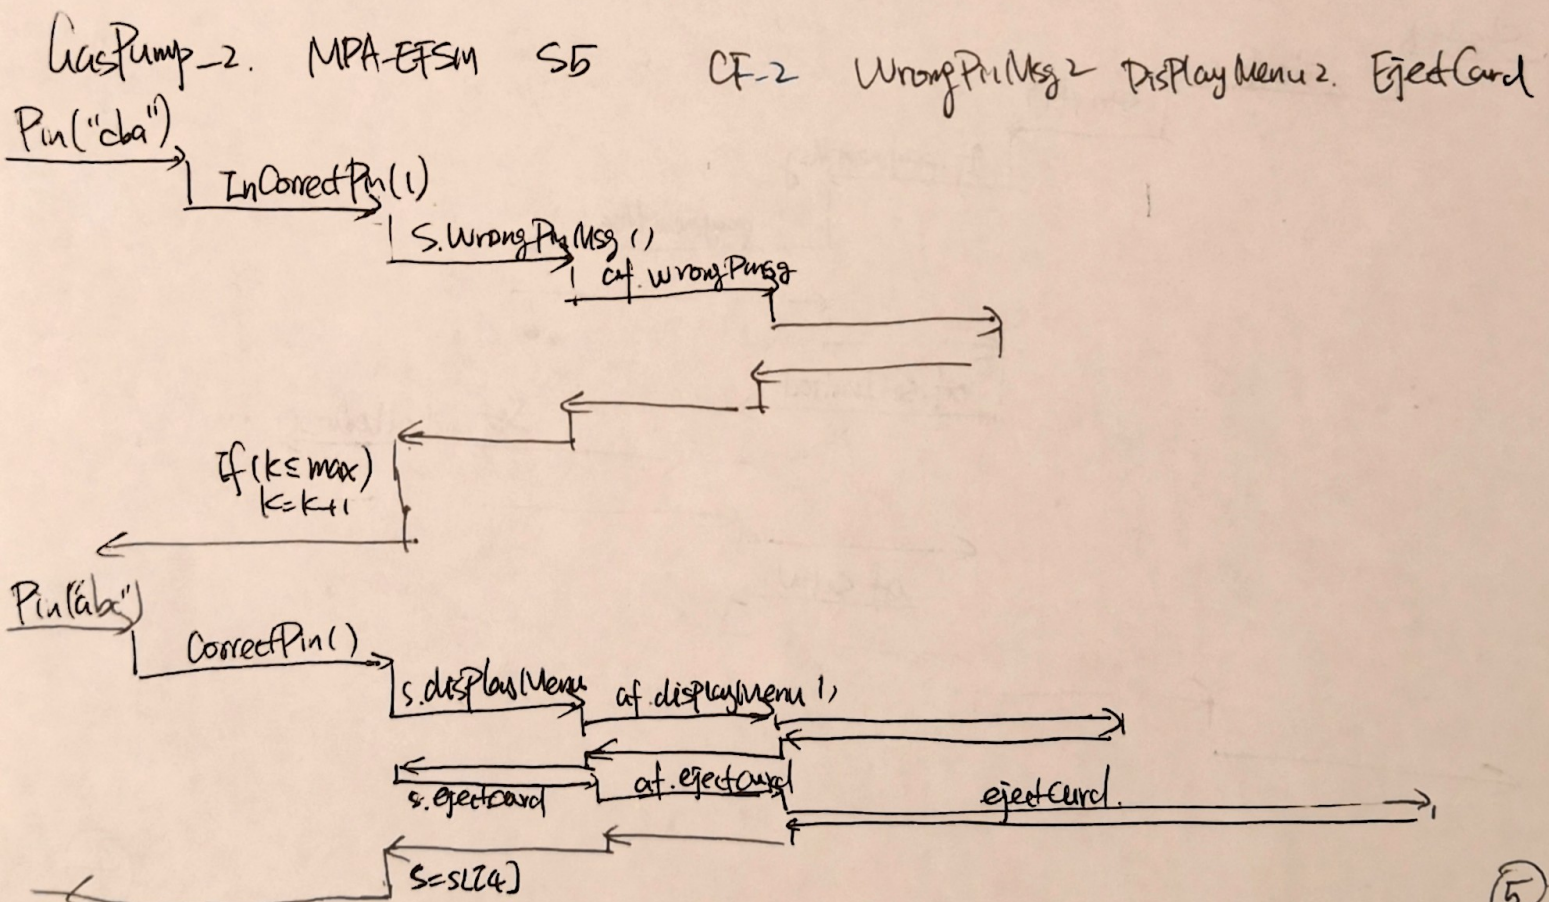 GasPump_2. MDA-EFSM S5 CF_2 WrongPinMsg2 DisplayMenu2. EjectCard
Pin("cba")
InCorrectPin(1)
S.WrongPinMsg()
af.wrongPinMsg
If(k≤max)
k=k+1
Pin("abc")
CorrectPin()
s.displayMenu af.displayMenu()
s.ejectcard af.ejectcard ejectCard.
S=SL[4]
5